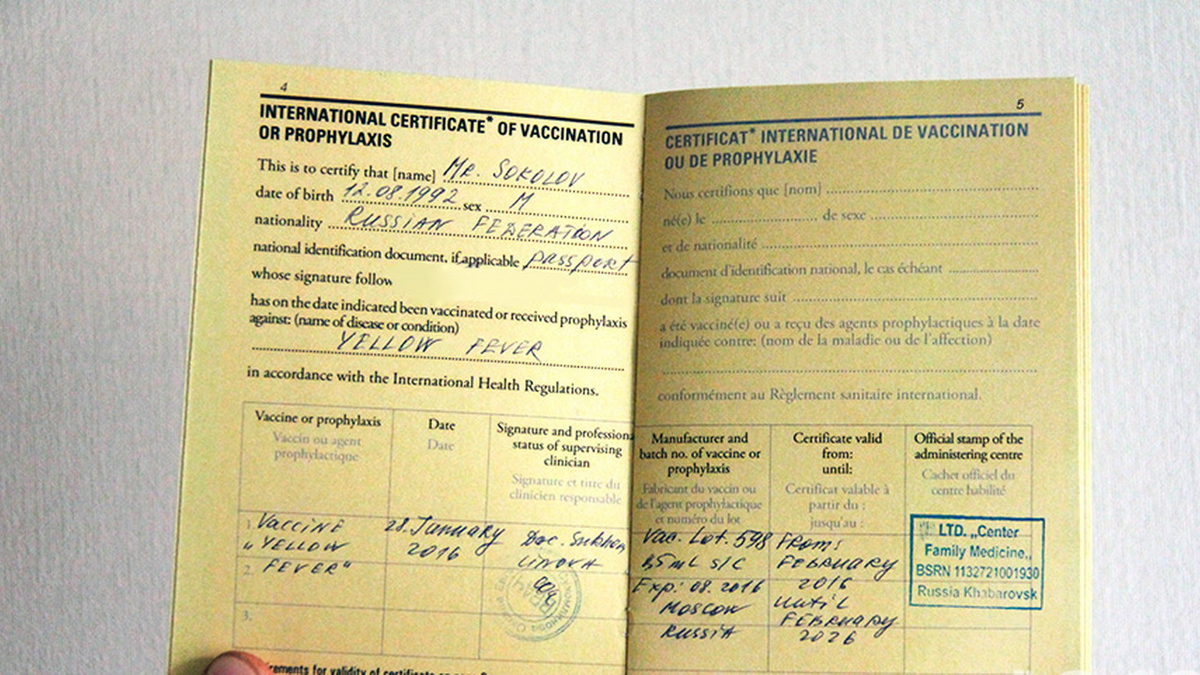 4
INTERNATIONAL CERTIFICATE* OF VACCINATION
OR PROPHYLAXIS
This is to certify that [name] Mr. SOKOLOV
date of birth 12.08.1992 sex M
nationality RUSSIAN FEDERATION
national identification document, if applicable passport
whose signature follow
has on the date indicated been vaccinated or received prophylaxis
against: (name of disease or condition)
YELLOW FEVER
in accordance with the International Health Regulations.
Vaccine or prophylaxis
Vaccin ou agent
prophylactique
Date
Date
Signature and professiona
status of supervising
clinician
Signature et titre du
clinicien responsable
1. VACCINE
„YELLOW
2. FEVER"
3.
28. January
2016
Doc.
rements for validity of certificate
5
CERTIFICAT* INTERNATIONAL DE VACCINATION
OU DE PROPHYLAXIE
Nous certifions que [nom]
né(e) le de sexe
et de nationalité
document d'identification national, le cas échéant
dont la signature suit
a été vacciné(e) ou a reçu des agents prophylactiques à la date
indiquée contre: (nom de la maladie ou de l'affection)
conformément au Règlement sanitaire international.
Manufacturer and
batch no. of vaccine or
prophylaxis
Fabricant du vaccin ou
de l'agent prophylactique
et numéro du lot
Certificate valid
from:
until:
Certificat valable à
partir du :
jusqu'au :
Official stamp of the
administering centre
Cachet officiel du
centre habilité
Vac. Lot. 598
S/C
Exp: 08.2016
MOSCOW
RUSSIA
FROM:
FEBRUARY
2016
UNTIL
FEBRUARY
2026
LTD. „Center
Family Medicine„
BSRN 1132721001930
Russia Khabarovsk